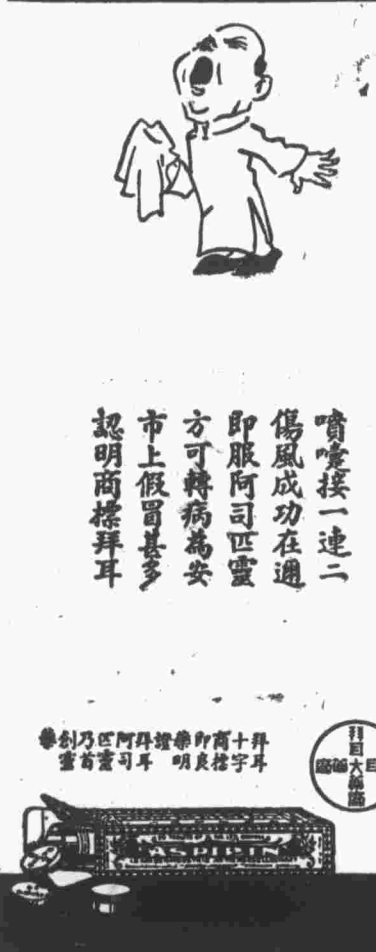 噴嚏接一連二
傷風成功在邇
即服阿司匹靈
方可轉病為安
市上假冒甚多
認明商標拜耳
拜耳
十字
商標
即良
藥明
證
拜耳
阿司
匹靈
乃首
創靈
藥
拜耳大藥廠
ASPIRIN